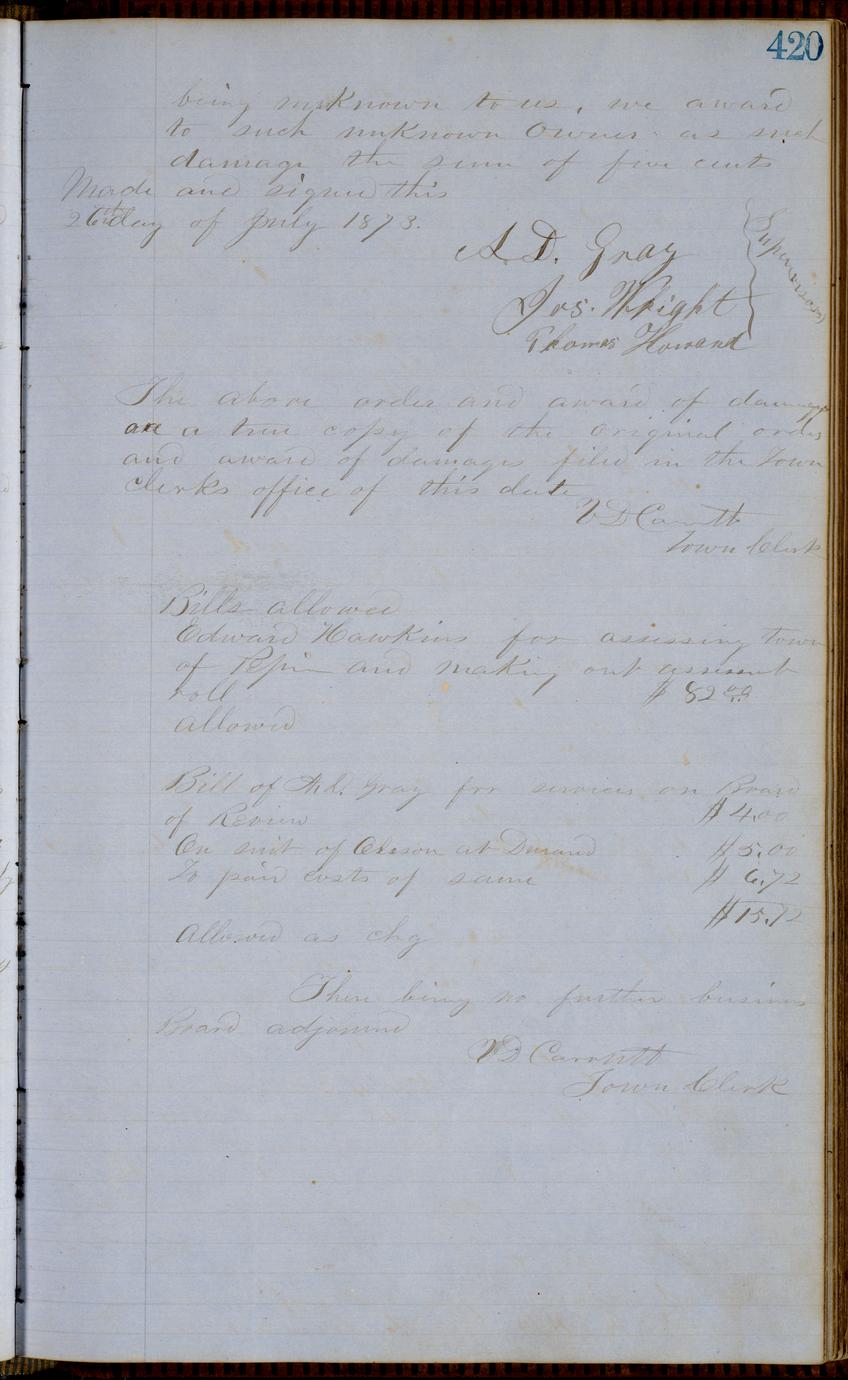 420
being unknown to us, we award
to such unknown Owner as such
damage the sum of five cents
Made and signed this
26th day of July 1873.
A. D. Gray
Jos. Wright
Thomas Howard
Supervisors
The above order and award of damages
are a true copy of the Original order
and award of damages filed in the Town
Clerks office of this date
V D Carruth
Town Clerk
Bills allowed
Edward Hawkins for assessing town
of Pepin and making out assesment
roll $82.00
allowed
Bill of A.D. Gray for services on Board
of Review $4.00
On suit of Oleson at Durand $5.00
To paid costs of same $6.72
$15.72
Allowed as chg
There being no further business
Board adjourned
V D Carruth
Town Clerk